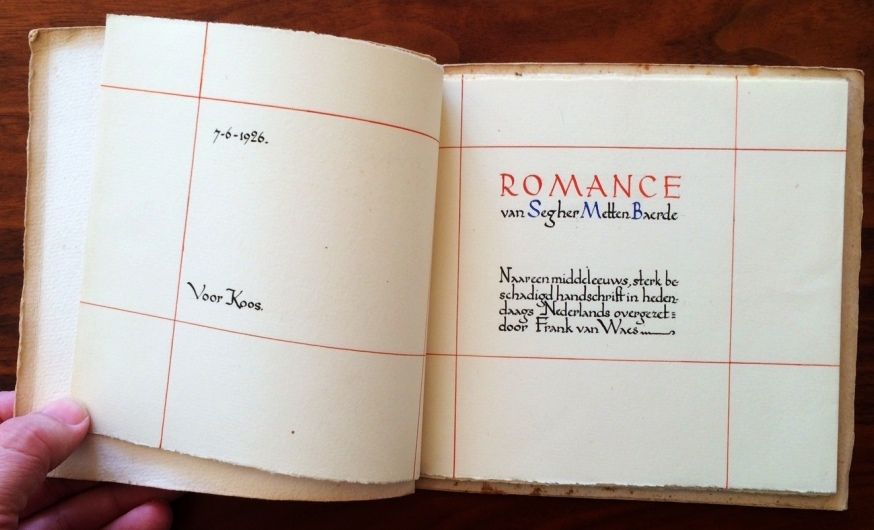 7-6-1926.
Voor Koos.
ROMANCE
van Segher Metten Baerde
Naar een middeleeuws, sterk be-
schadigd handschrift in heden-
daags Nederlands overgezet =
door Frank van Waes